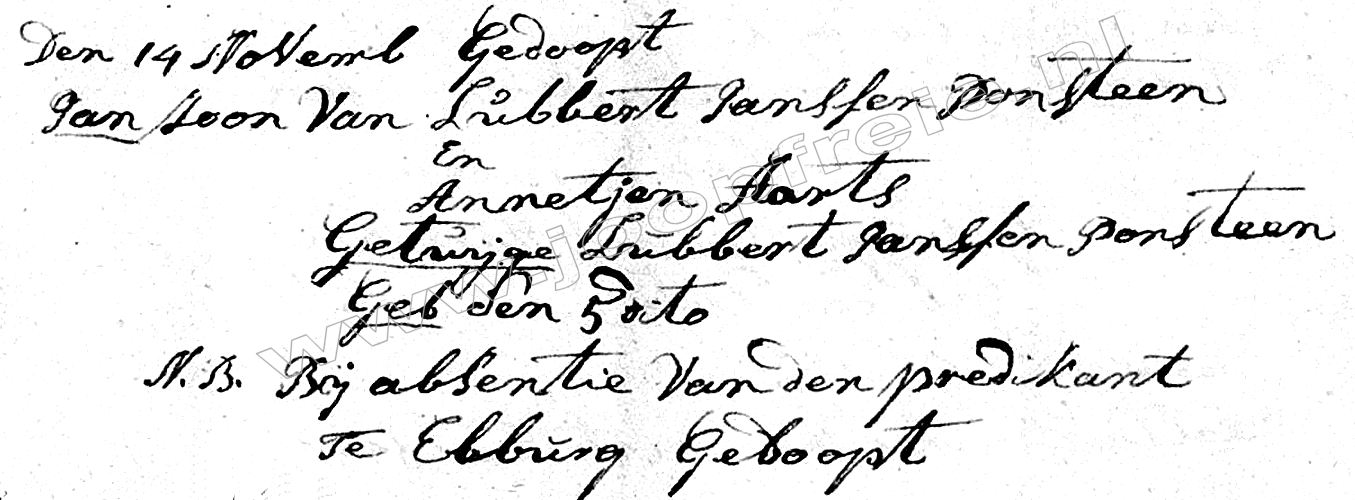 Den 14 Novemb Gedoopt
Jan zoon Van Lubbert Janssen Ponsteen
En
Annetjen Aarts
Getuijge Lubbert Janssen Ponsteen
Geb den 5 dito
N.B. Bij absentie Van den predikant
Te Elburg Gedoopt
www.joopfreie.nl